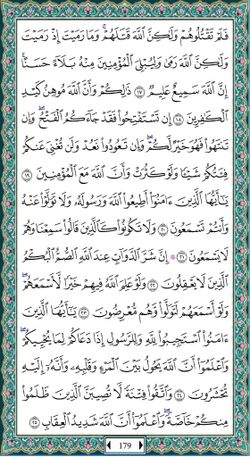 فَلَمْ تَقْتُلُوهُمْ وَلَٰكِنَّ ٱللَّهَ قَتَلَهُمْ ۚ وَمَا رَمَيْتَ إِذْ رَمَيْتَ
وَلَٰكِنَّ ٱللَّهَ رَمَىٰ ۚ وَلِيُبْلِىَ ٱلْمُؤْمِنِينَ مِنْهُ بَلَآءً حَسَنًا ۚ
إِنَّ ٱللَّهَ سَمِيعٌ عَلِيمٌ ١٧ ذَٰلِكُمْ وَأَنَّ ٱللَّهَ مُوهِنُ كَيْدِ
ٱلْكَٰفِرِينَ ١٨ إِن تَسْتَفْتِحُوا۟ فَقَدْ جَآءَكُمُ ٱلْفَتْحُ ۖ وَإِن
تَنتَهُوا۟ فَهُوَ خَيْرٌ لَّكُمْ ۖ وَإِن تَعُودُوا۟ نَعُدْ وَلَن تُغْنِىَ عَنكُمْ
فِئَتُكُمْ شَيْـًٔا وَلَوْ كَثُرَتْ وَأَنَّ ٱللَّهَ مَعَ ٱلْمُؤْمِنِينَ ١٩
يَٰٓأَيُّهَا ٱلَّذِينَ ءَامَنُوٓا۟ أَطِيعُوا۟ ٱللَّهَ وَرَسُولَهُۥ وَلَا تَوَلَّوْا۟ عَنْهُ
وَأَنتُمْ تَسْمَعُونَ ٢٠ وَلَا تَكُونُوا۟ كَٱلَّذِينَ قَالُوا۟ سَمِعْنَا وَهُمْ
لَا يَسْمَعُونَ ٢١ ۞ إِنَّ شَرَّ ٱلدَّوَآبِّ عِندَ ٱللَّهِ ٱلصُّمُّ ٱلْبُكْمُ
ٱلَّذِينَ لَا يَعْقِلُونَ ٢٢ وَلَوْ عَلِمَ ٱللَّهُ فِيهِمْ خَيْرًا لَّأَسْمَعَهُمْ ۖ
وَلَوْ أَسْمَعَهُمْ لَتَوَلَّوا۟ وَّهُم مُّعْرِضُونَ ٢٣ يَٰٓأَيُّهَا ٱلَّذِينَ
ءَامَنُوا۟ ٱسْتَجِيبُوا۟ لِلَّهِ وَلِلرَّسُولِ إِذَا دَعَاكُمْ لِمَا يُحْيِيكُمْ ۖ
وَٱعْلَمُوٓا۟ أَنَّ ٱللَّهَ يَحُولُ بَيْنَ ٱلْمَرْءِ وَقَلْبِهِۦ وَأَنَّهُۥٓ إِلَيْهِ
تُحْشَرُونَ ٢٤ وَٱتَّقُوا۟ فِتْنَةً لَّا تُصِيبَنَّ ٱلَّذِينَ ظَلَمُوا۟
مِنكُمْ خَآصَّةً ۖ وَٱعْلَمُوٓا۟ أَنَّ ٱللَّهَ شَدِيدُ ٱلْعِقَابِ ٢٥
179